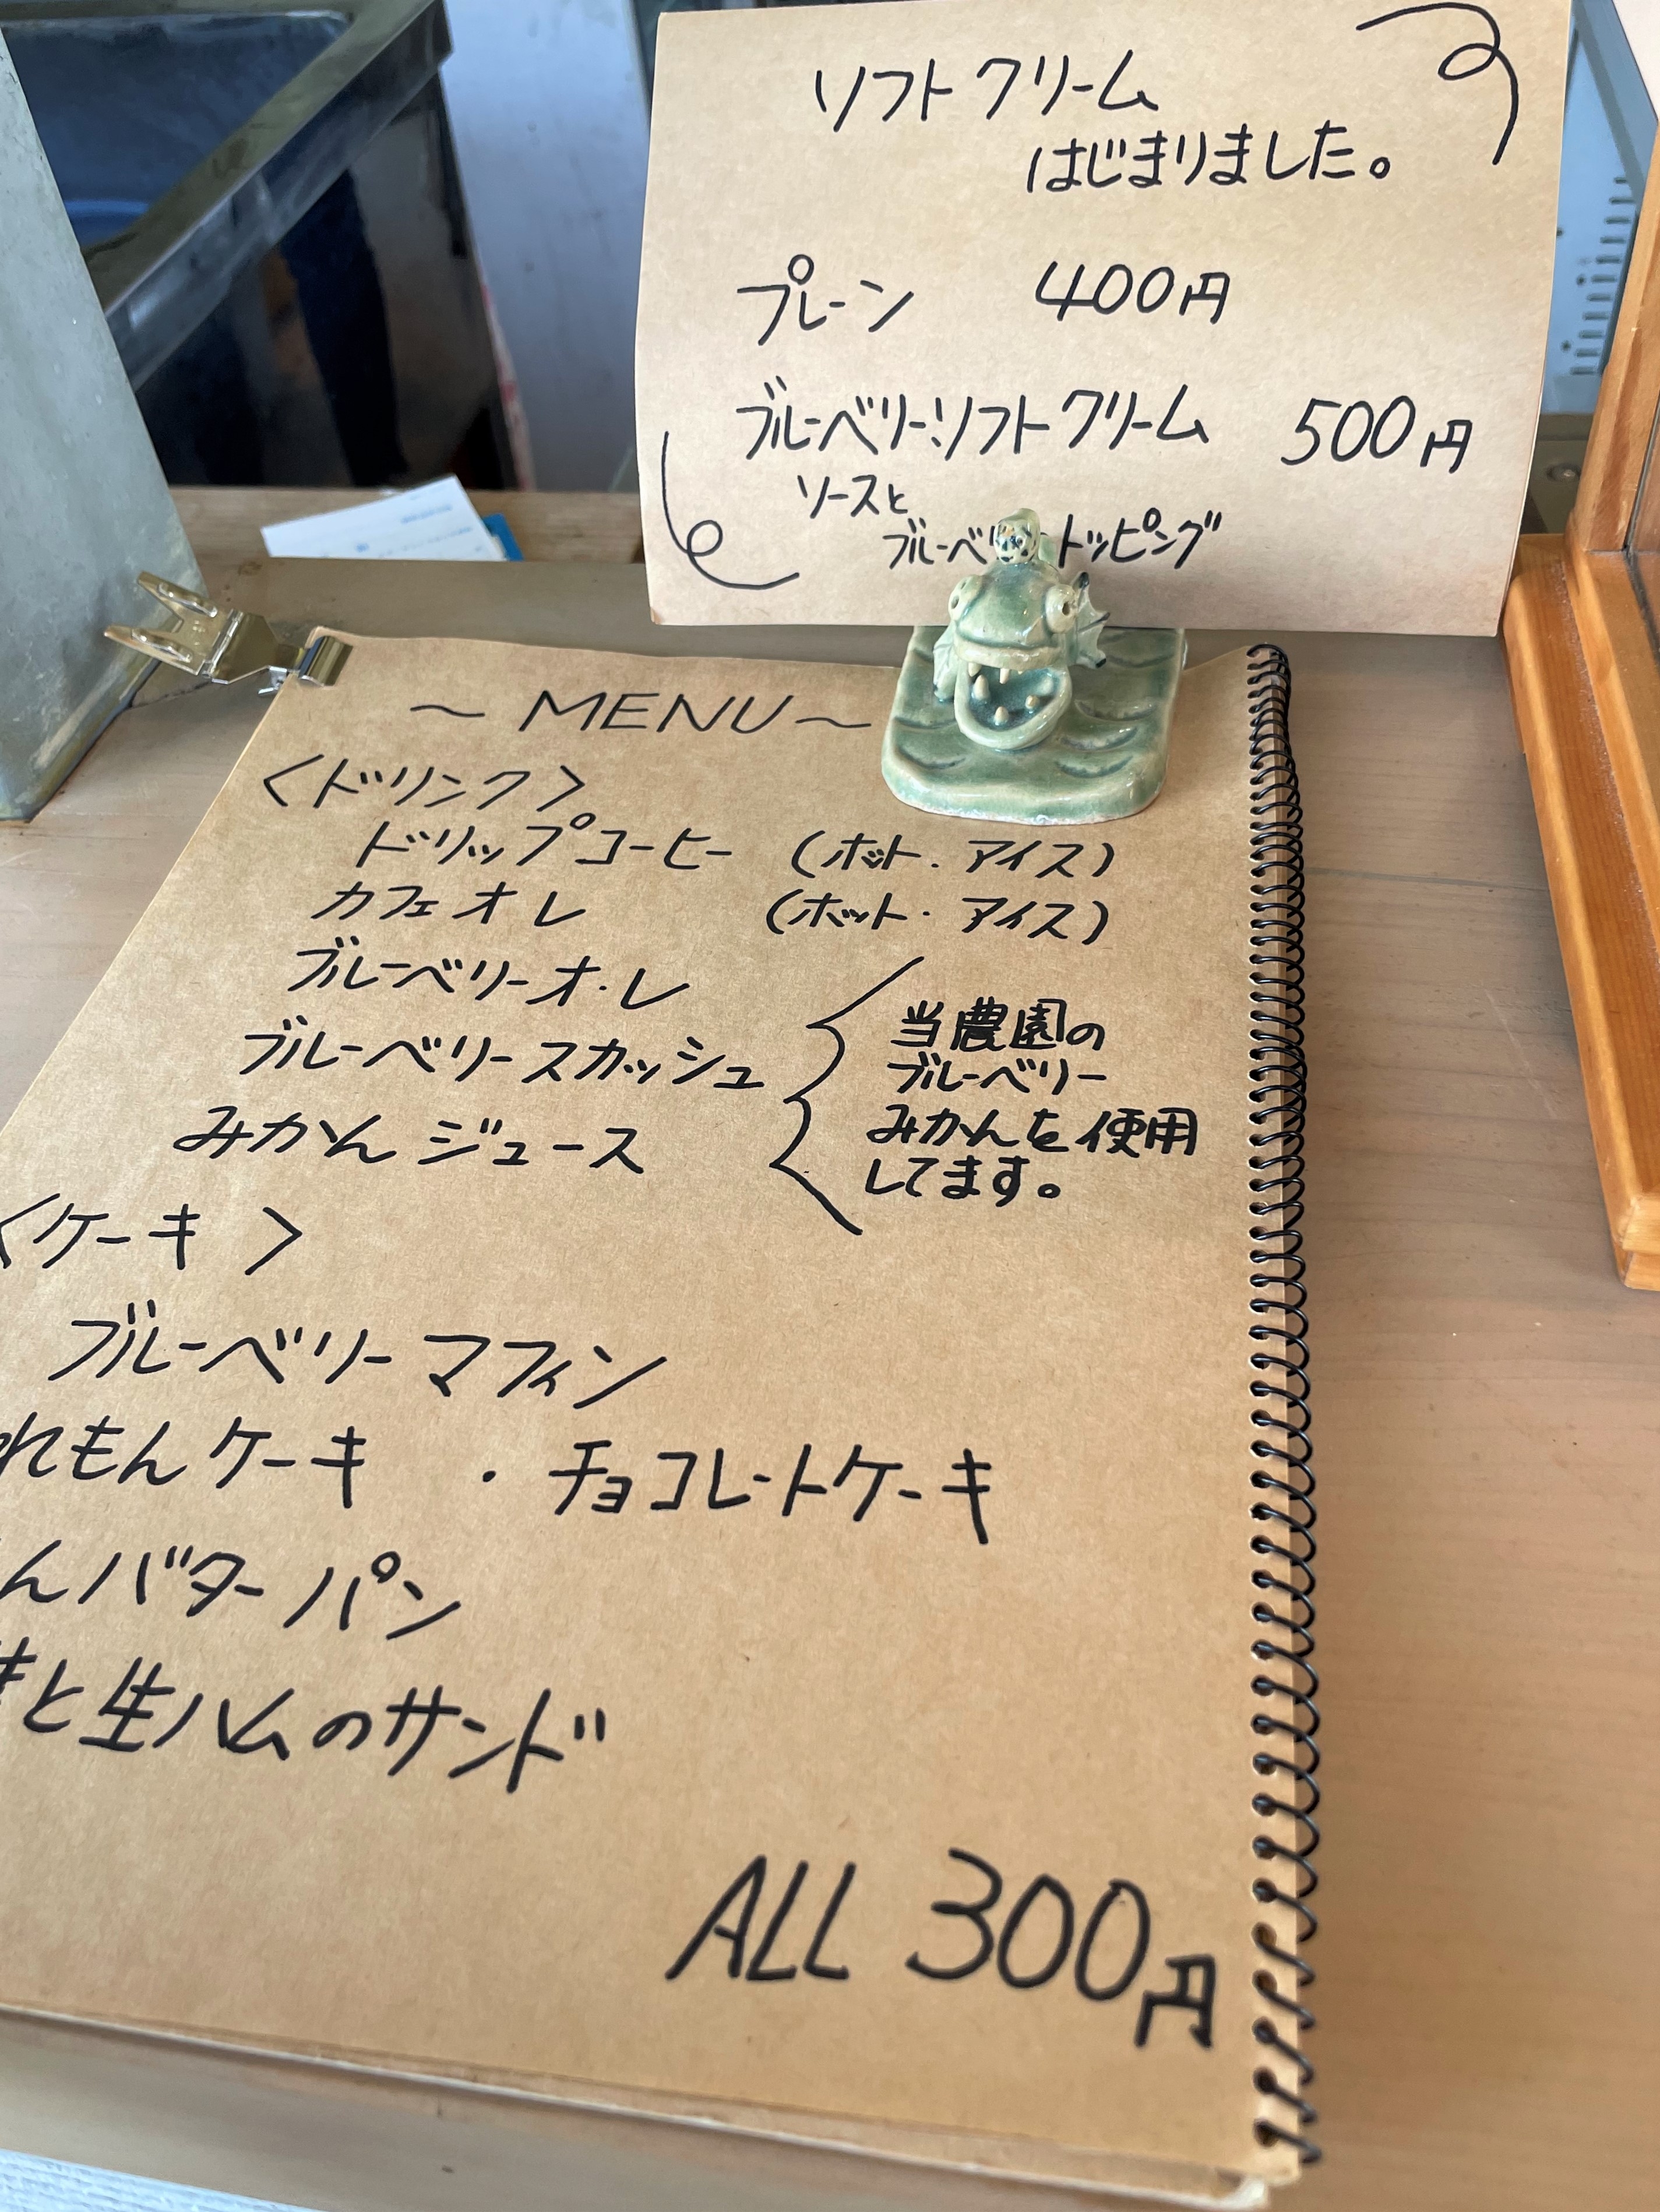 ソフトクリーム
はじまりました。
プレーン 400円
ブルーベリーソフトクリーム 500円
ソースと
ブルーベ トッピング
～ MENU ～
〈ドリンク〉
ドリップコーヒー (ホット・アイス)
カフェオレ (ホット・アイス)
ブルーベリーオ・レ
ブルーベリースカッシュ
みかんジュース
当農園の
ブルーベリー
みかんを使用
してます。
〈ケーキ〉
ブルーベリーマフィン
れもんケーキ ・チョコレートケーキ
んバターパン
と生ハムのサンド
ALL 300円